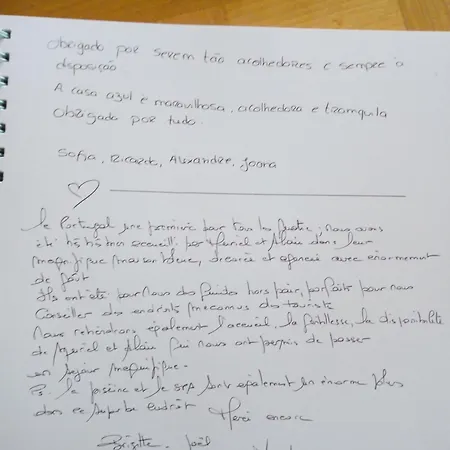 Obrigado por serem tão acolhedores e sempre à
disposição.
A casa azul é maravilhosa, acolhedora e tranquila
Obrigada por tudo.
Sofia, Ricardo, Alexandre, Joana
Le Portugal une première pour tous les quatre ; nous avons
été très très bien accueilli par Muriel et Alain dans leur
magnifique maison bleue, décorée et agencée avec énormément
de goût
Ils ont été pour nous des guides hors pair, parfaits pour nous
conseiller des endroits méconnus des touristes
Nous retiendrons également l'accueil, la gentillesse, la disponibilité
de Muriel et Alain qui nous ont permis de passer
un séjour magnifique.
PS. la piscine et le spa sont également un énorme plus
dans ce superbe endroit Merci encore
Brigitte, Joël